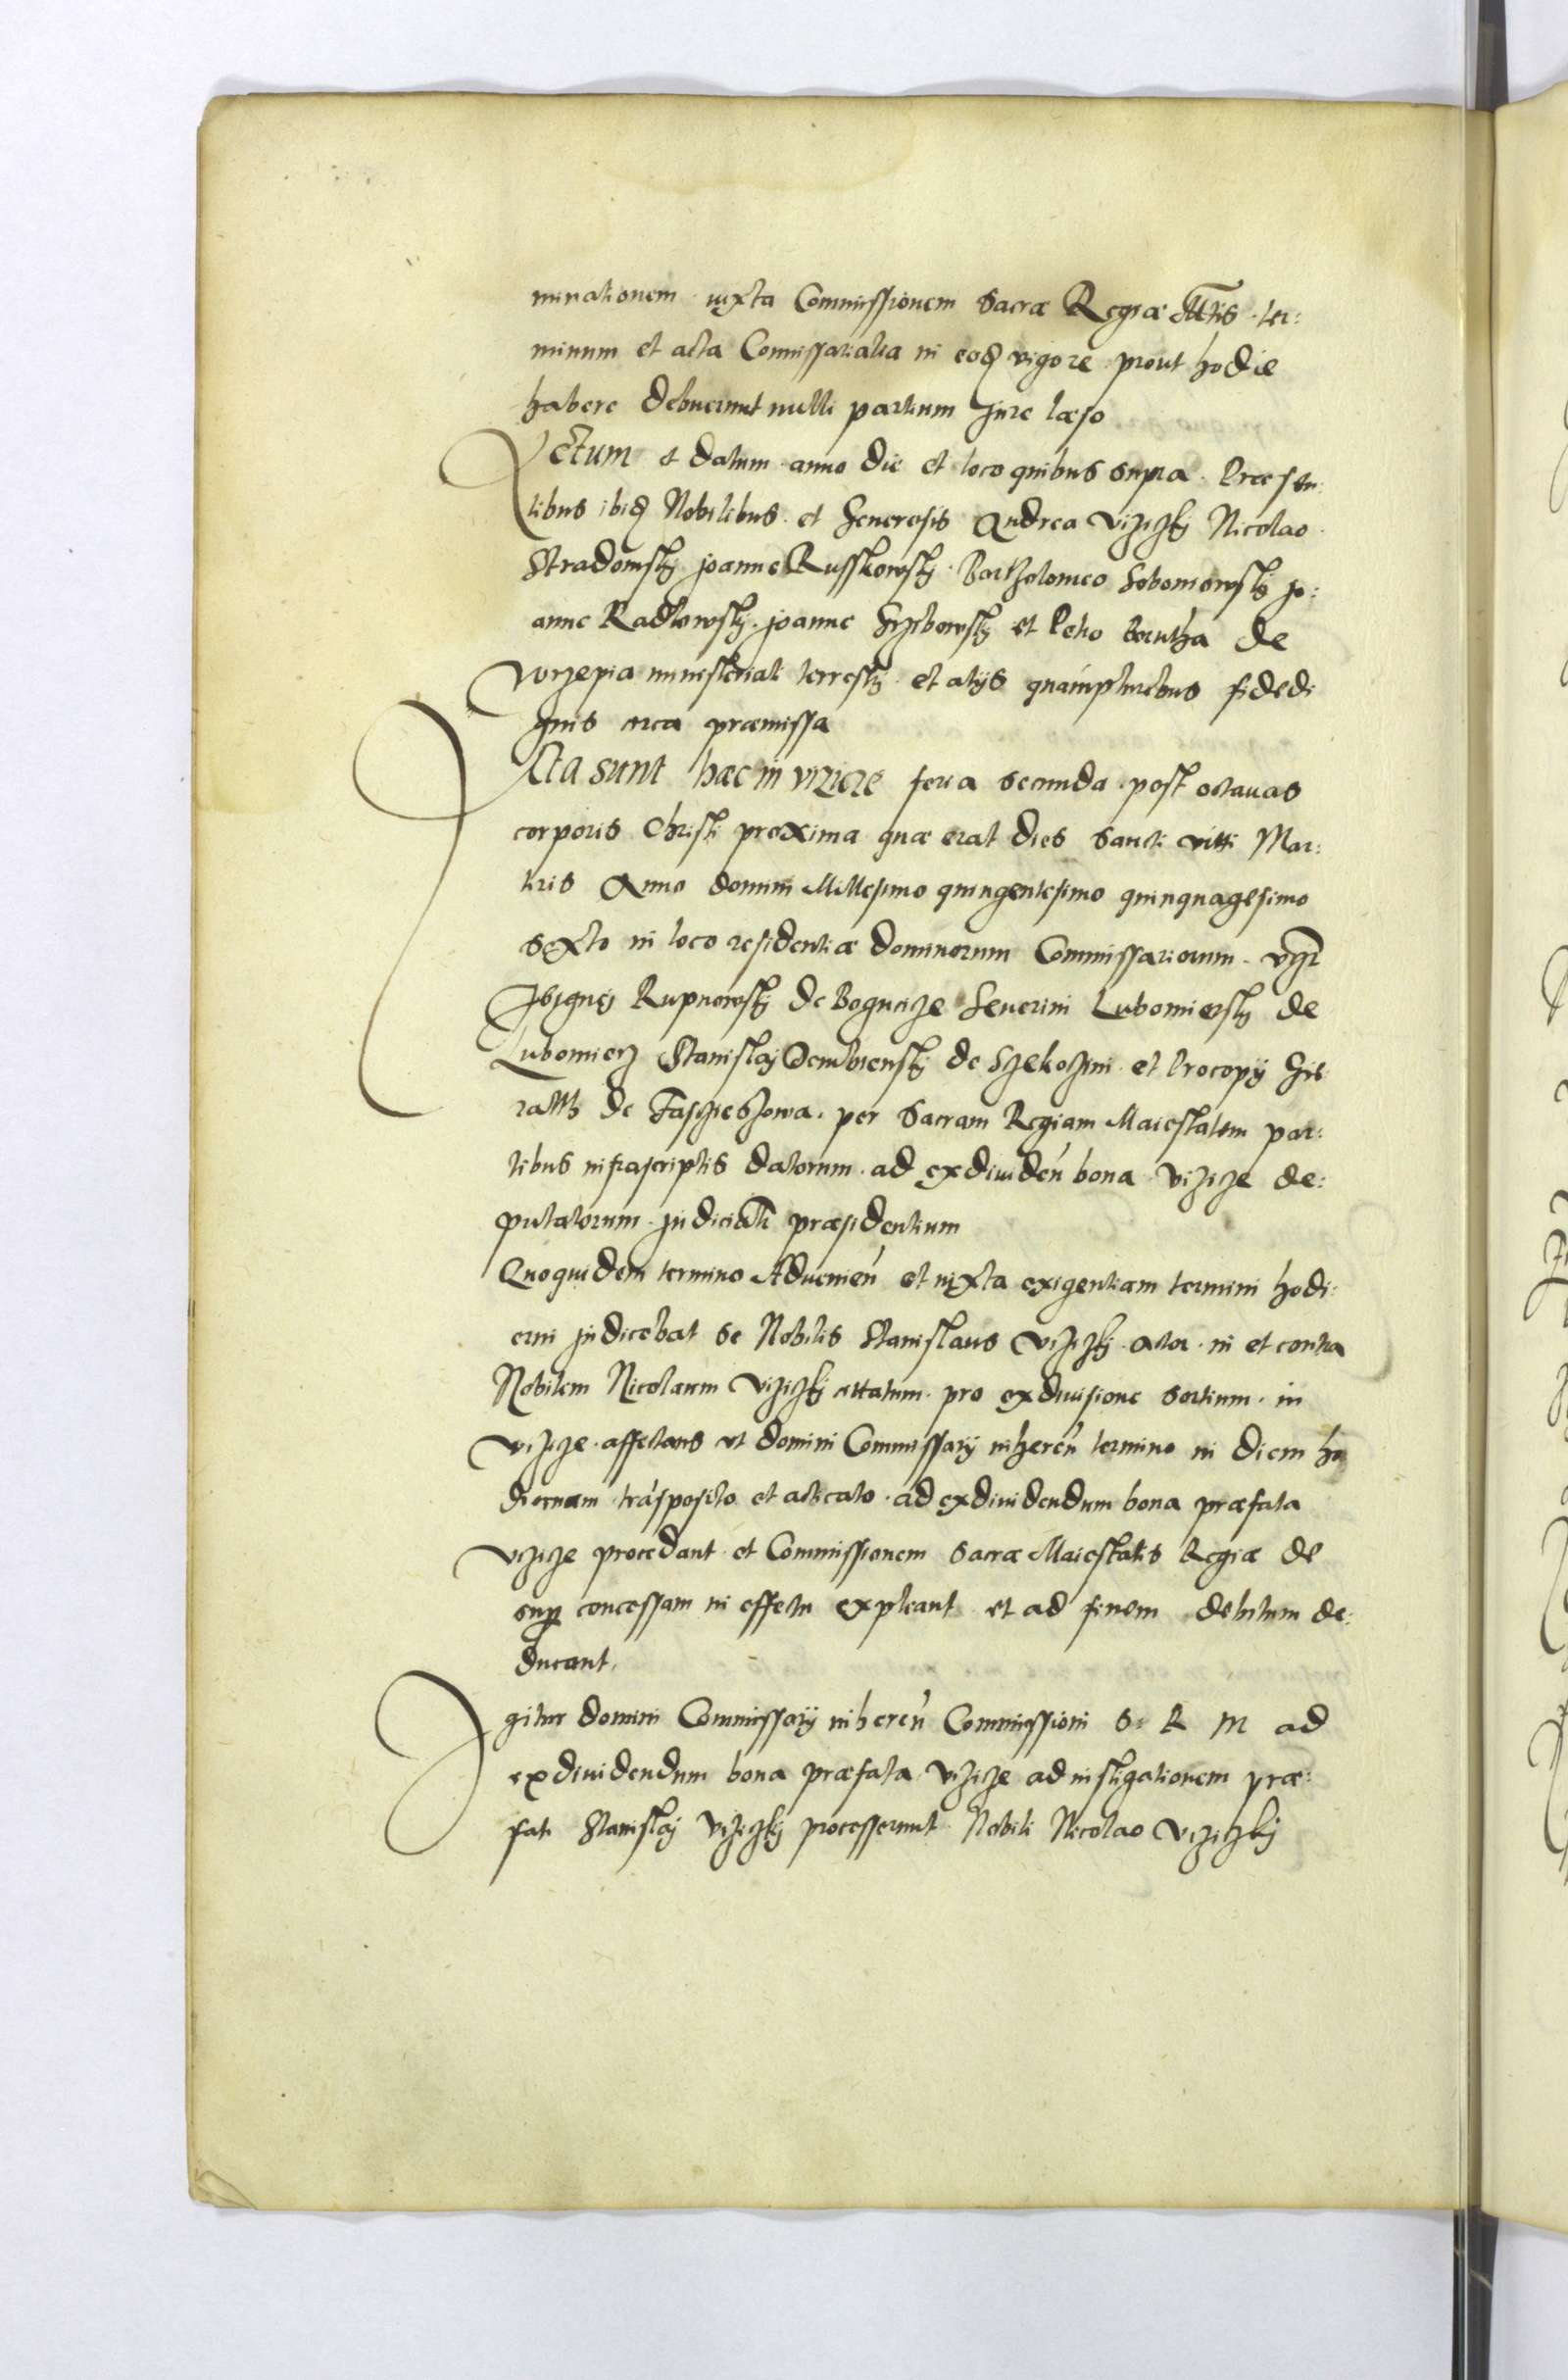 minationem iuxta Commissionem Sacræ Regiæ Mtis ter:
minum et acta Commissarialia in eodz vigore prout hodie
habere debuerunt nulli partium Jure læso
Actum et datum anno die et loco quibus supra. Præsen:
tibus ibidz Nobilibus et Generosis Andrea Vizizkj Nicolao
Stradomskj Joanne Russkowskj Bartholomeo Jo:
anne Radlowskj Joanne et Petro de
ministeriali terrestrj et alijs quàmpluribus fidedi
gnis circa præmissa
Acta sunt hæc in Vizicze feria secunda post octauas
corporis Christi proxima quæ erat dies Sancti Vitti Mar:
tiris Anno domini Millesimo quingentesimo quinquagesimo
sexto in loco residentiæ dominorum Commissariorum
Rupnowskj de Bogucize Seuerini Lubomierskj de
Lubomierz Stanislaj Dembienskj de Szekozini et Procopij
de per Sacram Regiam Maiestatem par:
tibus infrascriptis datorum ad exdiuideń bona Vizicze de:
putatorum Judicialr præsidentium
Quoquidem termino Adueneń et iuxta exigentiam termini hodi:
erni Judicebat se Nobilis Stanislaus Vizizkj actor in et contra
Nobilem Nicolaum Vizizkj cittatum pro exdiuisione sortium in
Vizicze affectans vt domini Commissarij inhereń termino in diem ho
diernam trásposito et acticato ad exdiuidendum bona præfata
Vizicze procedant et Commissionem Sacræ Maiestatis Regiæ de
sup concessam in effectu expleant et ad finem debitum de:
ducant.
Igitur domini Commissarij inhereń Commissioni S: R M ad
exdiuidendum bona præfata Vizicze ad instigationem præ:
fati Stanislaj Vizizkj processerunt Nobili Nicolao Vizizkj